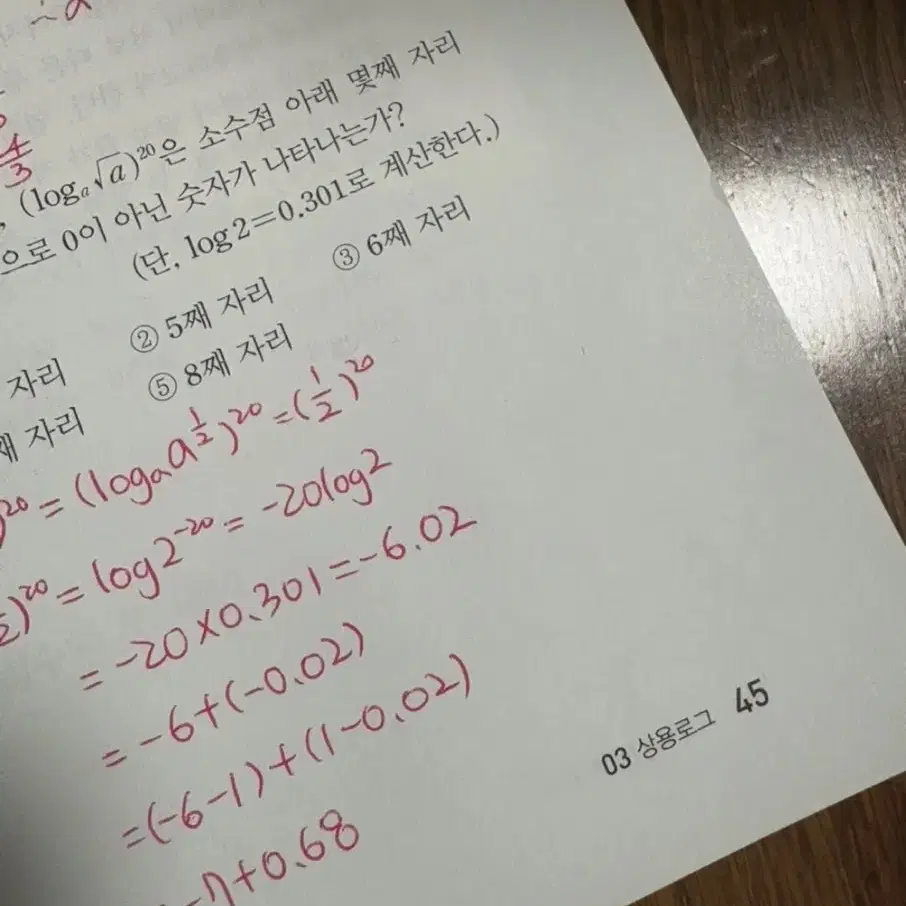 4/3
, (logₐ√a)²⁰은 소수점 아래 몇째 자리
으로 0이 아닌 숫자가 나타나는가?
(단, log2=0.301로 계산한다.)
자리 ② 5째 자리 ③ 6째 자리
째 자리 ⑤ 8째 자리
)²⁰=(logₐa^(1/2))²⁰=(1/2)²⁰
)²⁰=log2⁻²⁰=-20log2
=-20×0.301=-6.02
=-6+(-0.02)
=(-6-1)+(1-0.02)
-7+0.68
03 상용로그 45